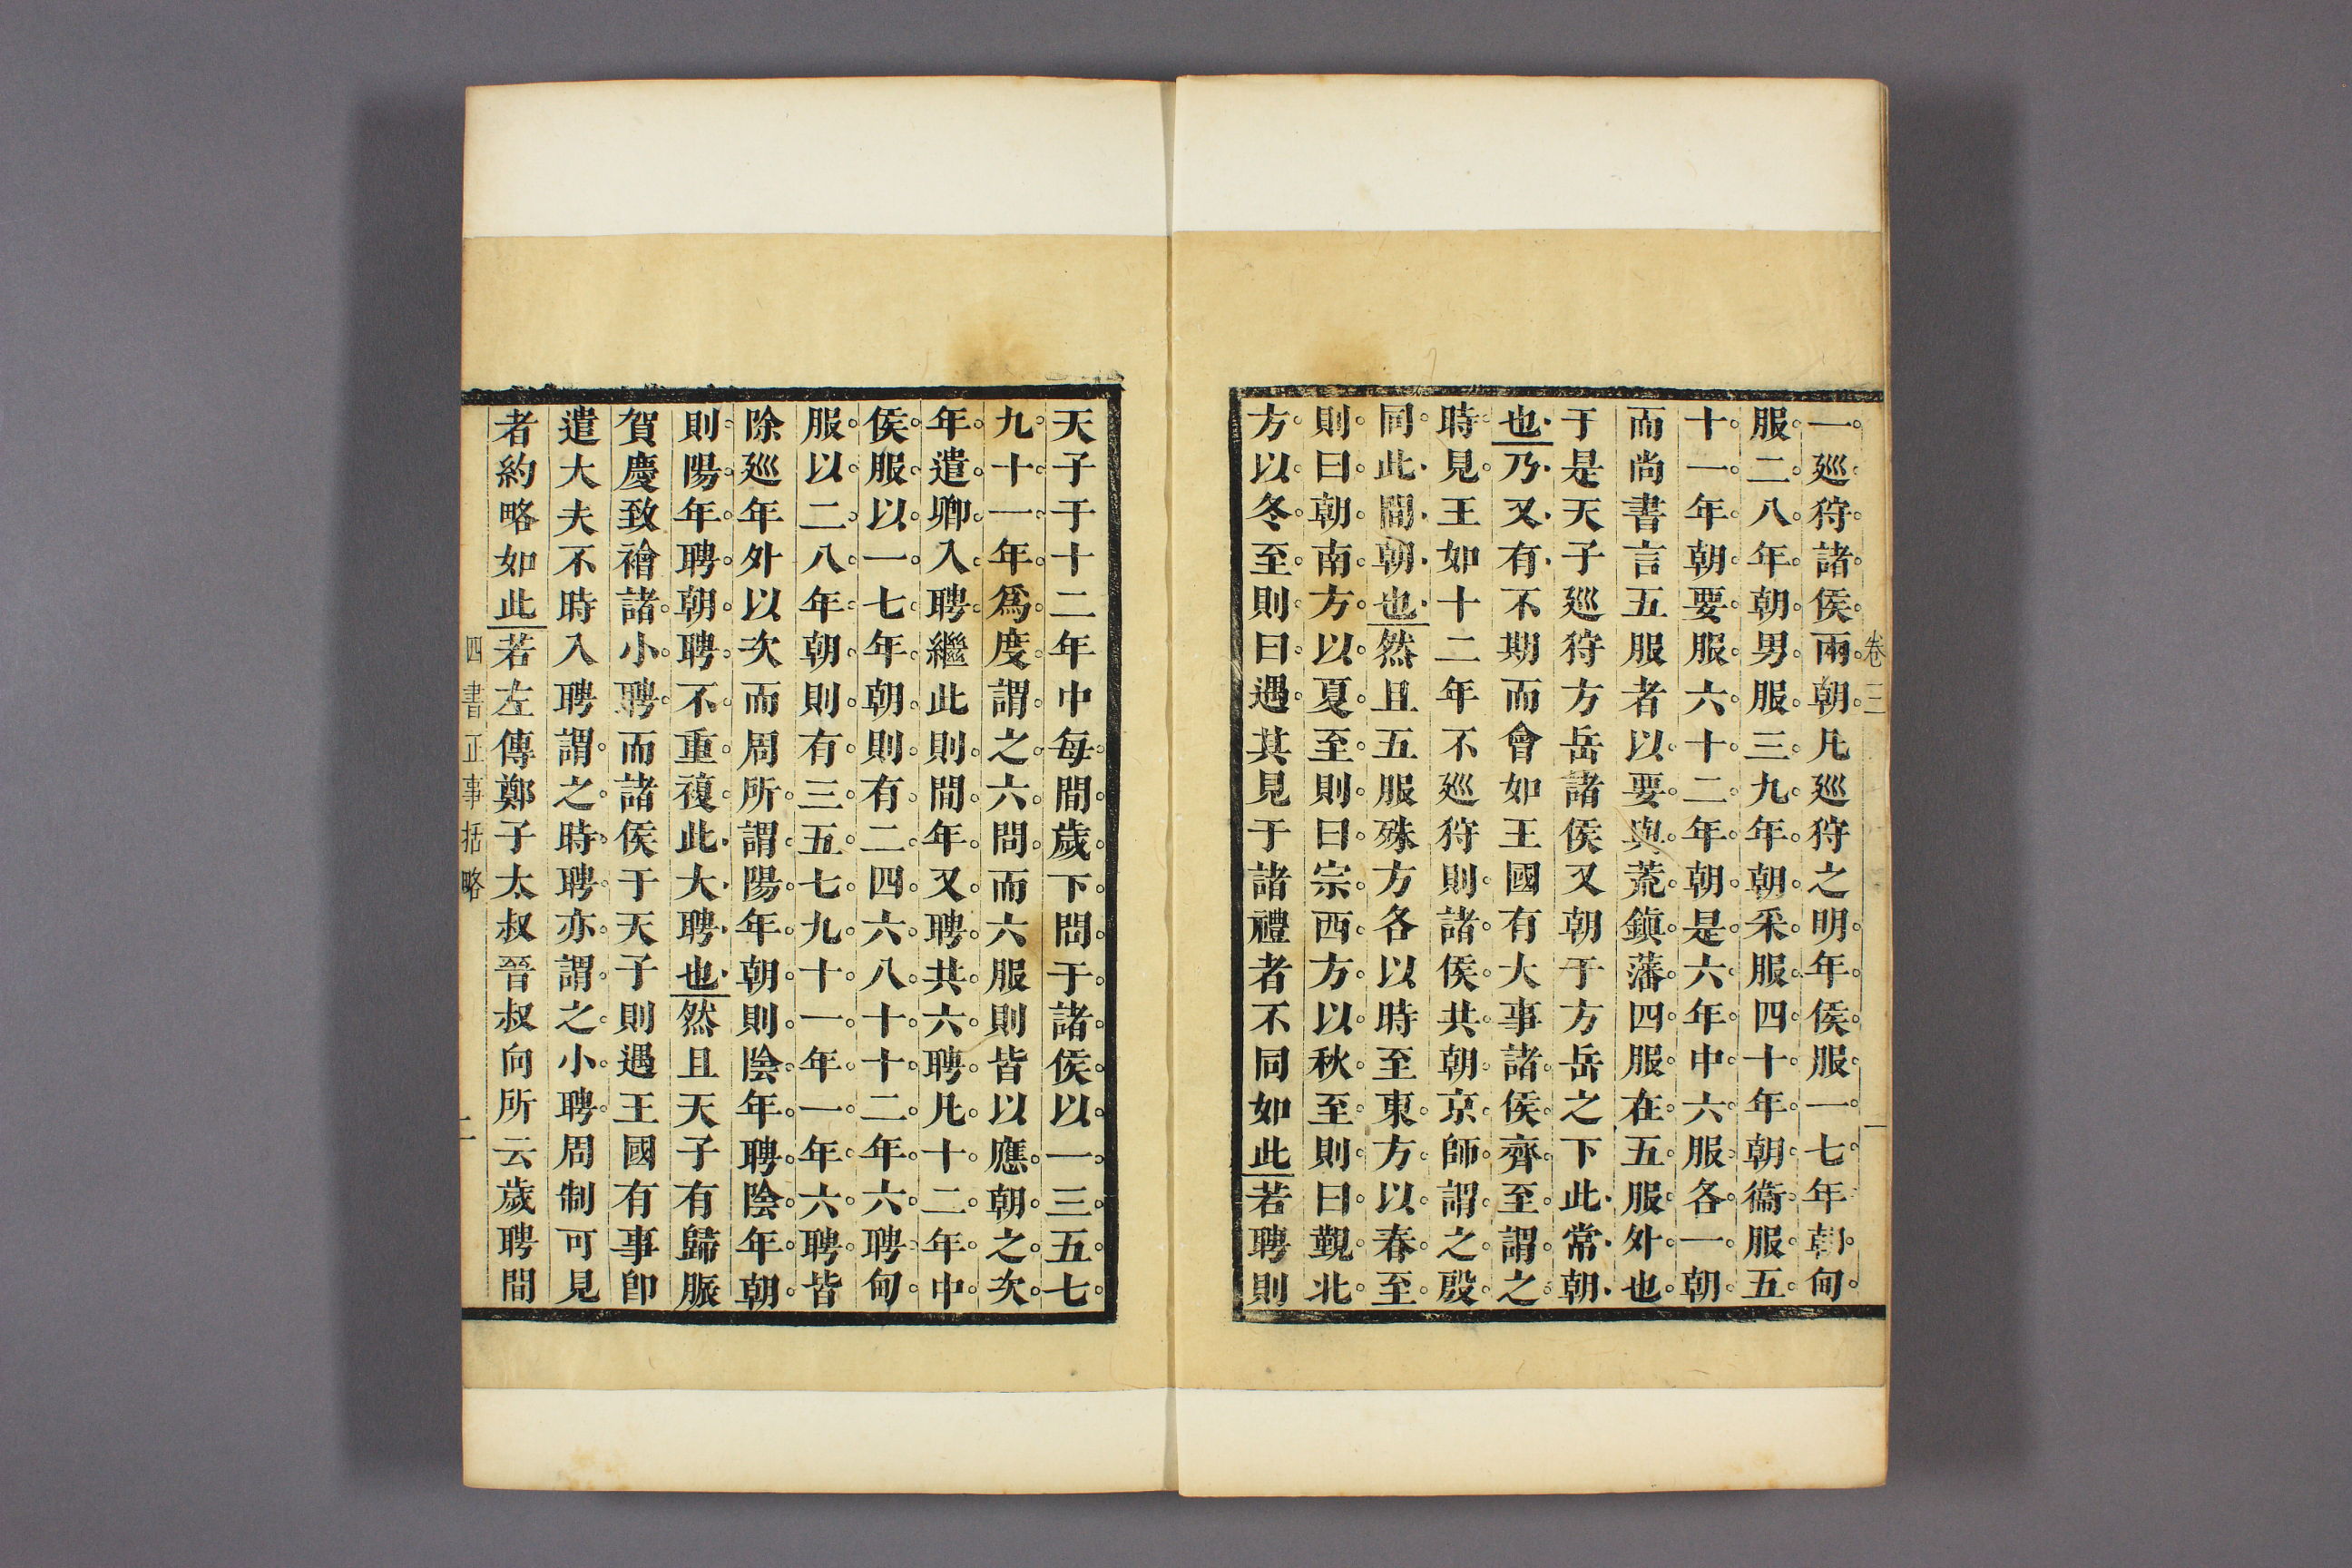 卷三
一
一巡狩諸侯兩朝凡巡狩之明年侯服一七年朝甸
服二八年朝男服三九年朝采服四十年朝衞服五
十一年朝要服六十二年朝是六年中六服各一朝
而尚書言五服者以要與荒鎭藩四服在五服外也
于是天子巡狩方岳諸侯又朝于方岳之下此常朝
也乃又有不期而會如王國有大事諸侯齊至謂之
時見王如十二年不巡狩則諸侯共朝京師謂之殷
同此間朝也然且五服殊方各以時至東方以春至
則曰朝南方以夏至則曰宗西方以秋至則曰覲北
方以冬至則曰遇其見于諸禮者不同如此若聘則
天子于十二年中每間歲下問于諸侯以一三五七
九十一年爲度謂之六問而六服則皆以應朝之次
年遣卿入聘繼此則間年又聘共六聘凡十二年中
侯服以一七年朝則有二四六八十十二年六聘甸
服以二八年朝則有三五七九十一年一年六聘皆
除巡年外以次而周所謂陽年朝則陰年聘陰年朝
則陽年聘朝聘不重複此大聘也然且天子有歸脤
賀慶致禬諸小聘而諸侯于天子則遇王國有事卽
遣大夫不時入聘謂之時聘亦謂之小聘周制可見
者約略如此若左傳鄭子太叔晉叔向所云歲聘間
四書正事括略
二